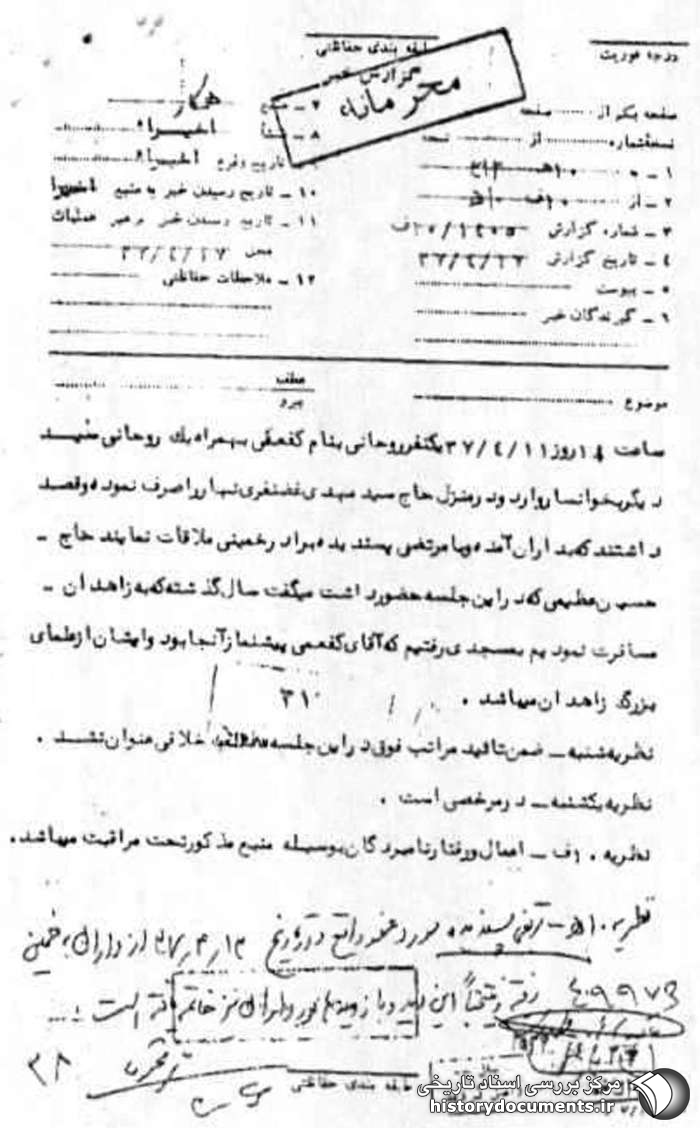 درجه فوریت
طبقه بندی حفاظتی
گزارش خبر
محرمانه
صفحه یکم از صفحه
نسخه شماره از نسخه
۱ - به ۳۱۲
۲ - از ۱۰ف ۵۱
۳ - شماره گزارش ۳۰/۱۴۰۵ف
۴ - تاریخ گزارش ۳۷/۴/۱۷
۵ - پیوست
۶ - گیرندگان خبر
۷ - منبع همکار
۸ - منشأ اخیرا
۹ - تاریخ وقوع اخیرا
۱۰ - تاریخ رسیدن خبر به منبع اخیرا
۱۱ - تاریخ رسیدن خبر به رهبر عملیات
محل ۳۷/۴/۱۷
۱۲ - ملاحظات حفاظتی
موضوع
عطف
پیرو
ساعت ۱۴ روز ۳۷/٤/۱۱ یکنفر روحانی بنام کفعمی بهمراه یک روحانی سفید
دیگر بخوانسار وارد ودر منزل حاج سید مهدی غضنفری نهار را صرف نموده وقصد
داشتند که بداران آمده وبا مرتضی پسندیده برادر خمینی ملاقات نمایند حاج -
حسین عظیمی که در این جلسه حضور داشت میگفت سال گذشته که به زاهدان -
مسافرت نمودیم بمسجدی رفتیم که آقای کفعمی پیشنماز آنجا بود وایشان از علمای
بزرگ زاهدان میباشد . ۳۱۰
نظریه شنبه - ضمن تائید مراتب فوق در این جلسه مطالب خلافی عنوان نشد .
نظریه یکشنبه - در مرخصی است .
نظریه . ۱ف - اعمال ورفتار نامبردگان بوسیله منبع مذکور تحت مراقبت میباشد .
نظریه ۱۰ﻫ - مرتضی پسندیده مورد نظر در تاریخ ۳۷٫۴٫۱۳ از داران به خمین
رفته این دیدو بازدیدها در داران نیز خاتمه یافته است
۴۹۹۷۳
۳۸
طبقه بندی حفاظتی
مرکز بررسی اسناد تاریخی
historydocuments.ir